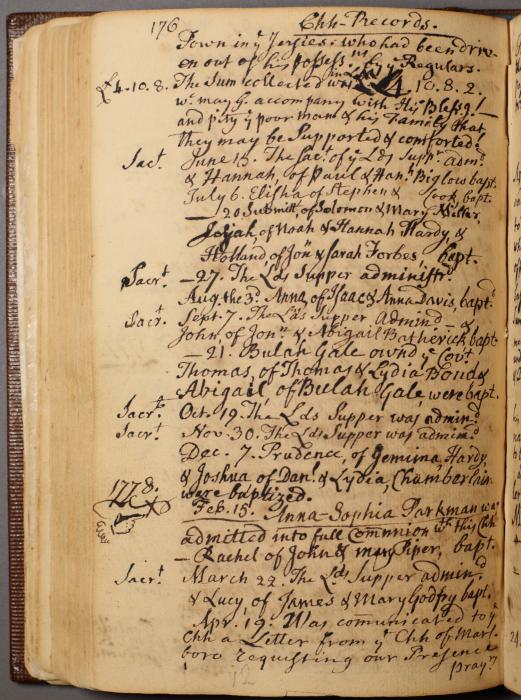 176 Chh-Records.
Town in yͤ Jersies: who had been driv-
en out of his possessⁿˢ by yͤ Regulars.
£4-10.8. The Sum collected was £4.10.8.2.
wͪ may G. accompany with His Blessg!
and pity yͤ poor man & his Family that
they may be Supported & comforted.
Sact. June 15. The Sact. of yͤ Lds Suppr admᵈ
& Hannah, of Paul & Hanh Biglow bapt.
July 6. Elisha of Stephen & Cook, bapt.
— 20 Submitt, of Solomon & Mary Miller,
Josiah, of Noah & Hannah Hardy, &
Holland, of Jonⁿ & Sarah Forbes, bapt.
Sacrt. — 27. The Lds Supper administr.
Aug. the 3ᵈ. Anna, of Isaac & Anna Davis, baptᵈ
Sacr.t Sept. 7. The Lds Supper Adminᵈ — &
John, of Jonⁿ & Abigail Batherick, bapt.
— 21. Bulah Gale ownd yͤ Covt.
Thomas, of Thomas & Lydia Bond &
Abigail, of Beulah Gale were bapt.
Sacrt. Oct. 19. The Lds Supper was adminᵈ
Sacrt. Nov. 30. The Lds Supper was adminᵈ
Dec. 7. Prudence, of Jemima Hardy,
& Joshua of Danl & Lydia, Chamberlain
were baptized.
1778. Feb. 15. Anna-Sophia Parkman was
admitted into full Commnion wth this Chh
— Rachel of John & mary Piper, bapt.
Sacrt. March 22. The Lds Supper adminᵈ
& Lucy, of James & Mary Godfry bapt.
Apr. 19. Was communicated to yͤ
Chh a Letter from yͤ Chh of Marl-
boro requesting our Presence
pray